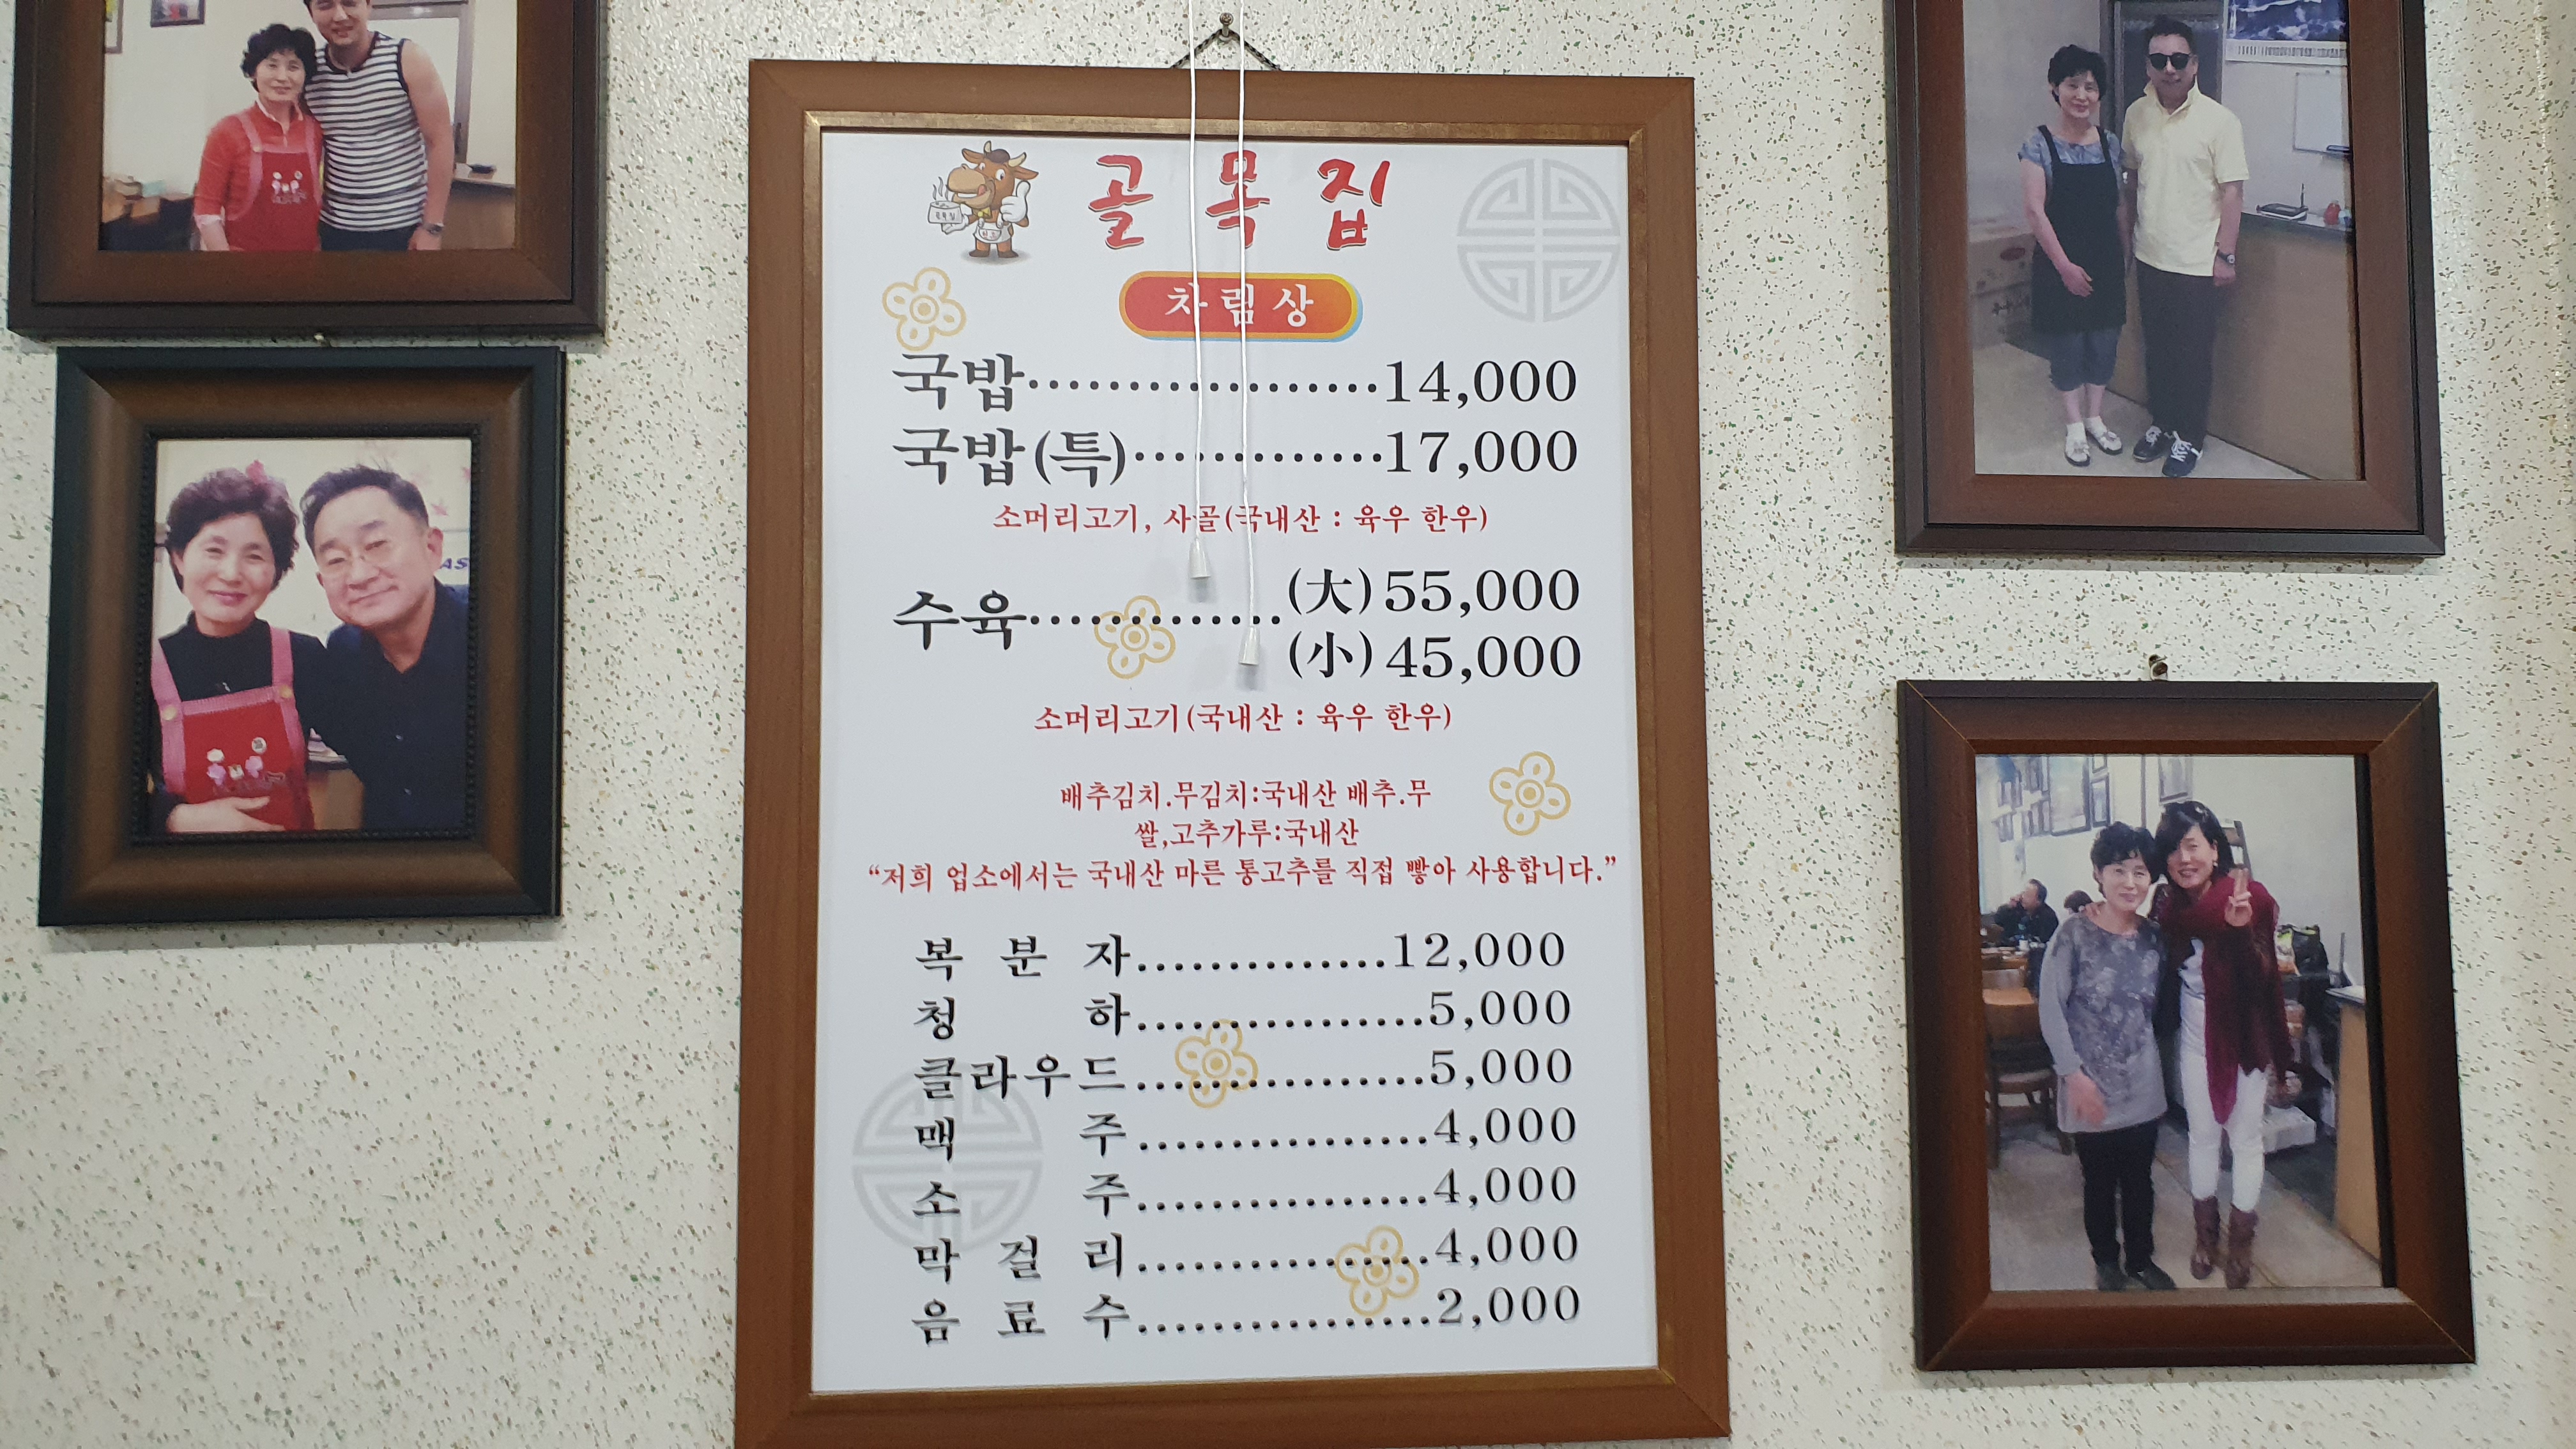 골목집
차림상
국밥..................14,000
국밥(특).............17,000
소머리고기, 사골(국내산 : 육우 한우)
수육.............(大)55,000
(小)45,000
소머리고기(국내산 : 육우 한우)
배추김치.무김치:국내산 배추.무
쌀,고추가루:국내산
“저희 업소에서는 국내산 마른 통고추를 직접 빻아 사용합니다.”
복 분 자..............12,000
청 하................5,000
클라우드................5,000
맥 주................4,000
소 주................4,000
막 걸 리................4,000
음 료 수................2,000